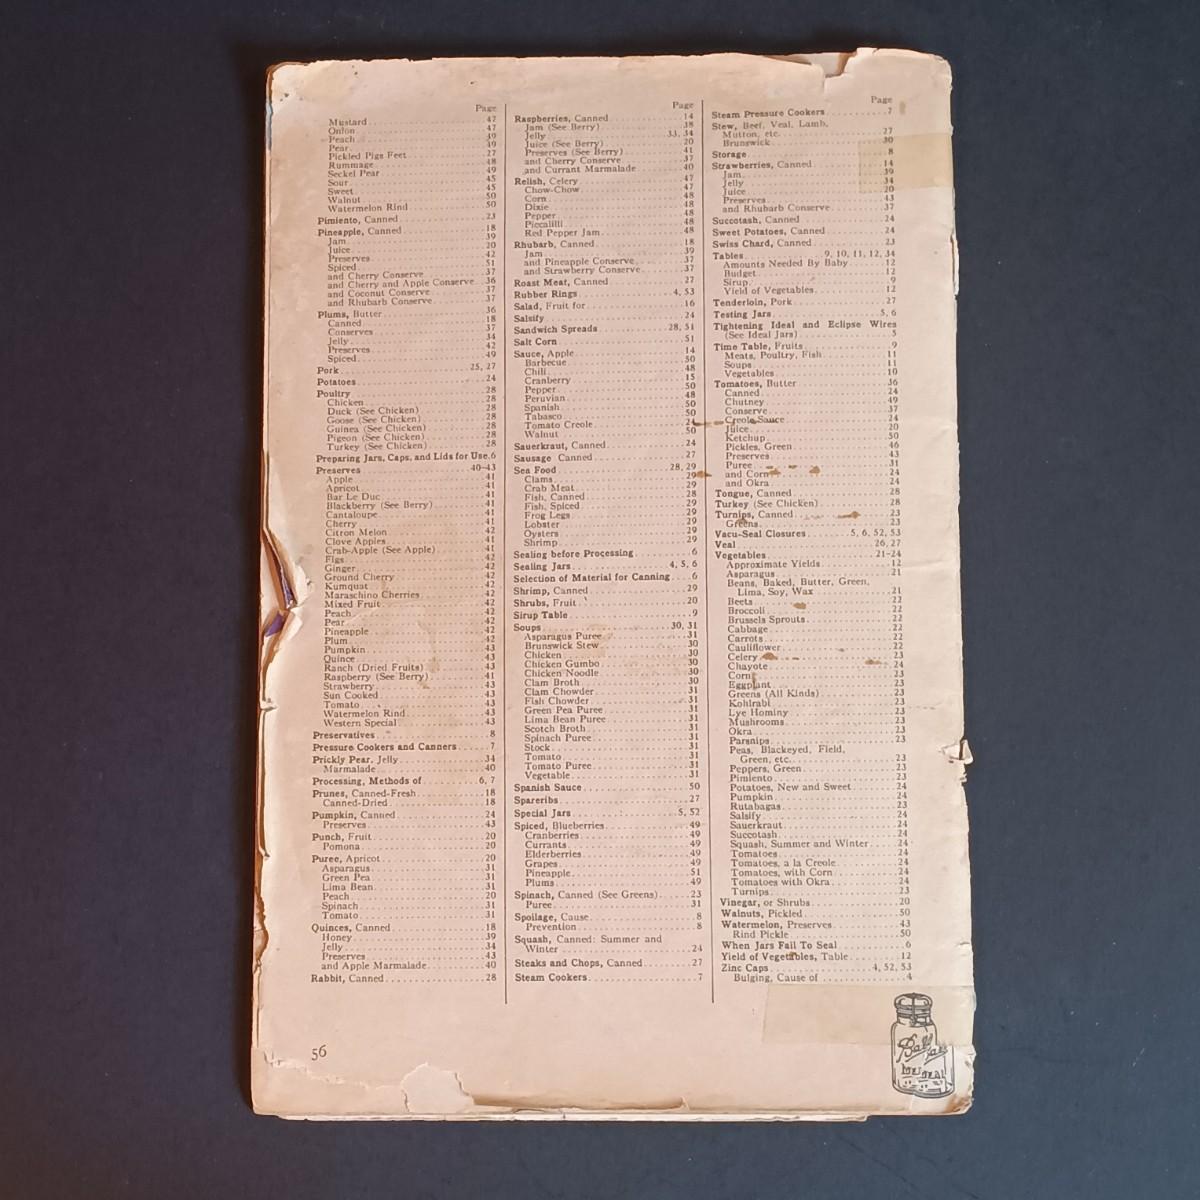 Page
Mustard 47
Onion 47
Peach 49
Pear 49
Pickled Pigs Feet 27
Rummage 48
Seckel Pear 49
Sour 45
Sweet 45
Walnut 50
Watermelon Rind 50
Pimiento, Canned 23
Pineapple, Canned 18
Jam 39
Juice 20
Preserves 42
Spiced 51
and Cherry Conserve 37
and Cherry and Apple Conserve 36
and Coconut Conserve 37
and Rhubarb Conserve 37
Plums, Butter 36
Canned 18
Conserves 37
Jelly 34
Preserves 42
Spiced 49
Pork 25, 27
Potatoes 24
Poultry 28
Chicken 28
Duck (See Chicken) 28
Goose (See Chicken) 28
Guinea (See Chicken) 28
Pigeon (See Chicken) 28
Turkey (See Chicken) 28
Preparing Jars, Caps, and Lids for Use. 6
Preserves 40-43
Apple 41
Apricot 41
Bar Le Duc 41
Blackberry (See Berry) 41
Cantaloupe 41
Cherry 41
Citron Melon 42
Clove Apples 41
Crab-Apple (See Apple) 41
Figs 42
Ginger 42
Ground Cherry 42
Kumquat 42
Maraschino Cherries 42
Mixed Fruit 42
Peach 42
Pear 42
Pineapple 42
Plum 42
Pumpkin 43
Quince 43
Ranch (Dried Fruits) 43
Raspberry (See Berry) 41
Strawberry 43
Sun Cooked 43
Tomato 43
Watermelon Rind 43
Western Special 43
Preservatives 8
Pressure Cookers and Canners 7
Prickly Pear, Jelly 34
Marmalade 40
Processing, Methods of 6, 7
Prunes, Canned-Fresh 18
Canned-Dried 18
Pumpkin, Canned 24
Preserves 43
Punch, Fruit 20
Pomona 20
Puree, Apricot 20
Asparagus 31
Green Pea 31
Lima Bean 31
Peach 20
Spinach 31
Tomato 31
Quinces, Canned 18
Honey 39
Jelly 34
Preserves 43
and Apple Marmalade 40
Rabbit, Canned 28
56
Page
Raspberries, Canned 14
Jam (See Berry) 38
Jelly 33, 34
Juice (See Berry) 20
Preserves (See Berry) 41
and Cherry Conserve 37
and Currant Marmalade 40
Relish, Celery 47
Chow-Chow 47
Corn 48
Dixie 48
Pepper 48
Piccalilli 48
Red Pepper Jam 48
Rhubarb, Canned 18
Jam 39
and Pineapple Conserve 37
and Strawberry Conserve 37
Roast Meat, Canned 27
Rubber Rings 4, 53
Salad, Fruit for 16
Salsify 24
Sandwich Spreads 28, 51
Salt Corn 51
Sauce, Apple 14
Barbecue 50
Chili 48
Cranberry 15
Pepper 50
Peruvian 48
Spanish 50
Tabasco 50
Tomato Creole 24
Walnut 50
Sauerkraut, Canned 24
Sausage Canned 27
Sea Food 28, 29
Clams 29
Crab Meat 29
Fish, Canned 28
Fish, Spiced 29
Frog Legs 29
Lobster 29
Oysters 29
Shrimp 29
Sealing before Processing 6
Sealing Jars 4, 5, 6
Selection of Material for Canning 6
Shrimp, Canned 29
Shrubs, Fruit 20
Sirup Table 9
Soups 30, 31
Asparagus Puree 31
Brunswick Stew 30
Chicken 30
Chicken Gumbo 30
Chicken Noodle 30
Clam Broth 30
Clam Chowder 31
Fish Chowder 31
Green Pea Puree 31
Lima Bean Puree 31
Scotch Broth 31
Spinach Puree 31
Stock 31
Tomato 31
Tomato Puree 31
Vegetable 31
Spanish Sauce 50
Spareribs 27
Special Jars 5, 52
Spiced, Blueberries 49
Cranberries 49
Currants 49
Elderberries 49
Grapes 49
Pineapple 51
Plums 49
Spinach, Canned (See Greens) 23
Puree 31
Spoilage, Cause 8
Prevention 8
Squash, Canned: Summer and
Winter 24
Steaks and Chops, Canned 27
Steam Cookers 7
Page
Steam Pressure Cookers 7
Stew, Beef, Veal, Lamb,
Mutton, etc. 27
Brunswick 30
Storage 8
Strawberries, Canned 14
Jam 39
Jelly 34
Juice 20
Preserves 43
and Rhubarb Conserve 37
Succotash, Canned 24
Sweet Potatoes, Canned 24
Swiss Chard, Canned 23
Tables 9, 10, 11, 12, 34
Amounts Needed By Baby 12
Budget 12
Sirup 9
Yield of Vegetables 12
Tenderloin, Pork 27
Testing Jars 5, 6
Tightening Ideal and Eclipse Wires
(See Ideal Jars) 5
Time Table, Fruits 9
Meats, Poultry, Fish 11
Soups 11
Vegetables 10
Tomatoes, Butter 36
Canned 24
Chutney 49
Conserve 37
Creole Sauce 24
Juice 20
Ketchup 50
Pickles, Green 46
Preserves 43
Puree 31
and Corn 24
and Okra 24
Tongue, Canned 28
Turkey (See Chicken) 28
Turnips, Canned 23
Greens 23
Vacu-Seal Closures 5, 6, 52, 53
Veal 26, 27
Vegetables 21-24
Approximate Yields 12
Asparagus 21
Beans, Baked, Butter, Green,
Lima, Soy, Wax 21
Beets 22
Broccoli 22
Brussels Sprouts 22
Cabbage 22
Carrots 22
Cauliflower 22
Celery 23
Chayote 24
Corn 23
Eggplant 23
Greens (All Kinds) 23
Kohlrabi 23
Lye Hominy 23
Mushrooms 23
Okra 23
Parsnips 23
Peas, Blackeyed, Field,
Green, etc. 23
Peppers, Green 23
Pimiento 23
Potatoes, New and Sweet 24
Pumpkin 24
Rutabagas 23
Salsify 24
Sauerkraut 24
Succotash 24
Squash, Summer and Winter 24
Tomatoes 24
Tomatoes, a la Creole 24
Tomatoes, with Corn 24
Tomatoes with Okra 24
Turnips 23
Vinegar, or Shrubs 20
Walnuts, Pickled 50
Watermelon, Preserves 43
Rind Pickle 50
When Jars Fail To Seal 6
Yield of Vegetables, Table 12
Zinc Caps 4, 52, 53
Bulging, Cause of 4
Ball
IDEAL